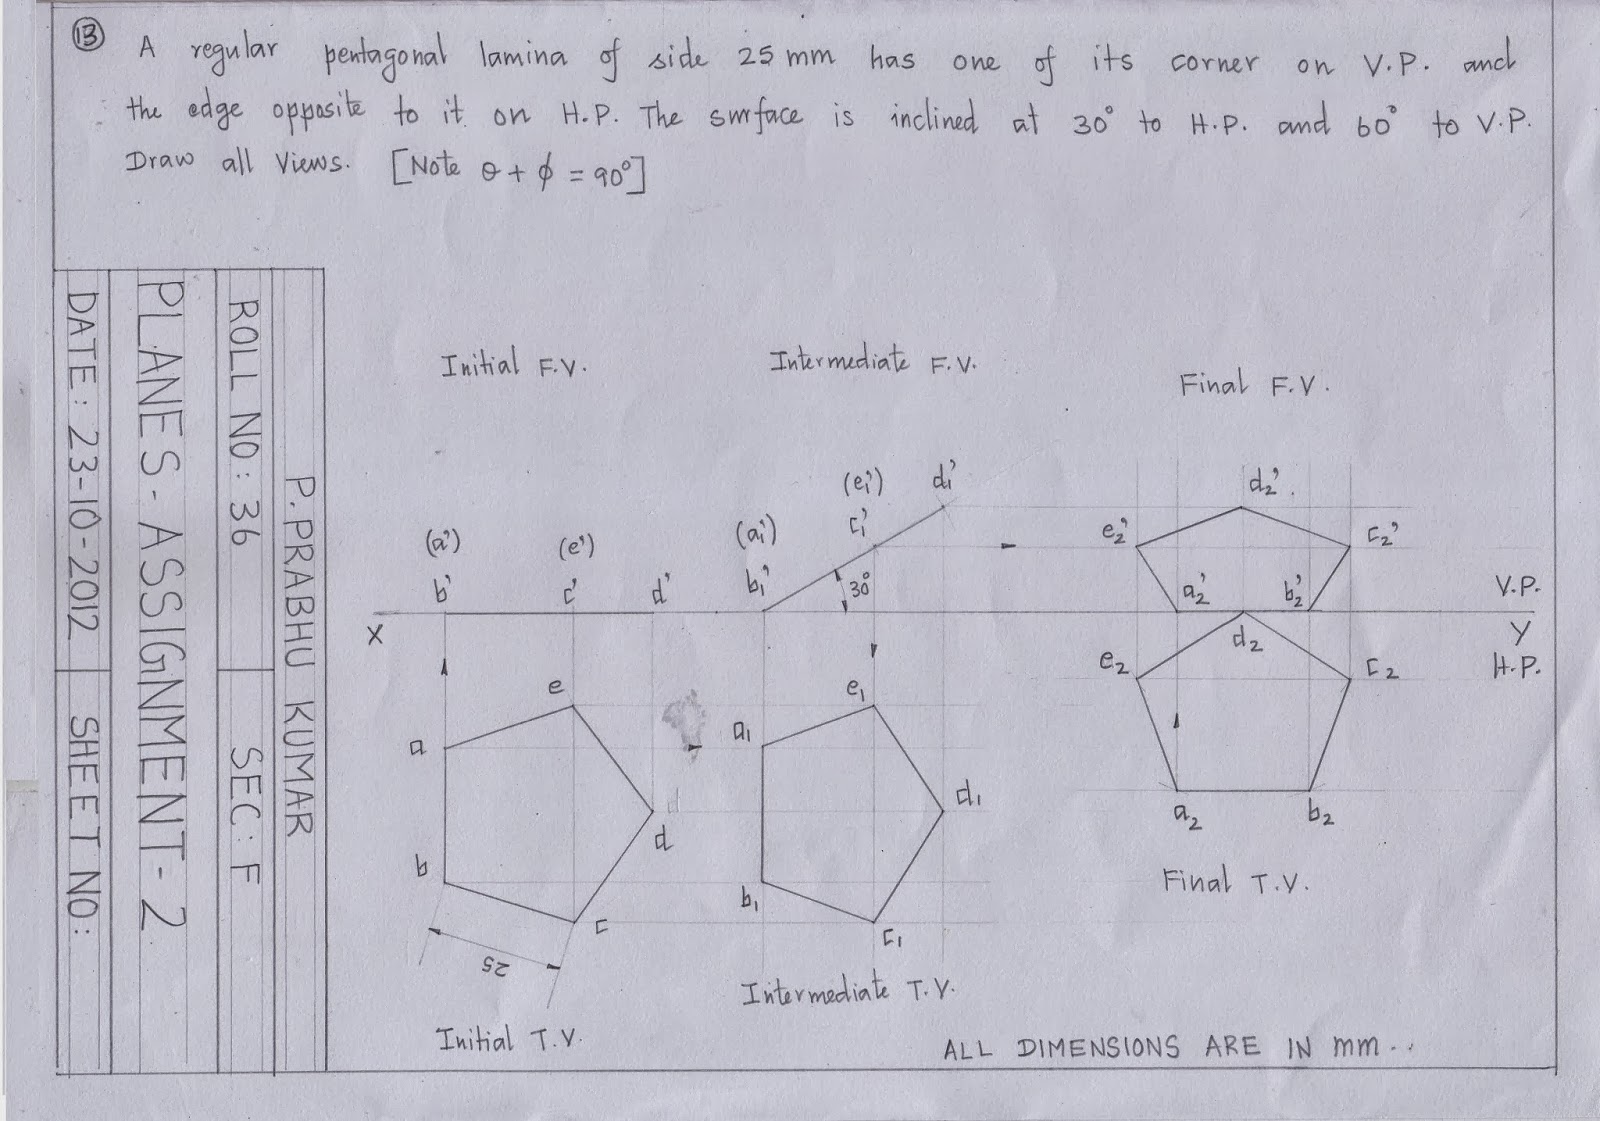 13 A regular pentagonal lamina of side 25 mm has one of its corner on V.P. and
the edge opposite to it on H.P. The surface is inclined at 30° to H.P. and 60° to V.P.
Draw all views. [Note θ + φ = 90°]
P. PRABHU KUMAR
ROLL NO: 36 SEC: F
PLANES-ASSIGNMENT-2
DATE: 23-10-2012 SHEET NO:
Initial F.V. Intermediate F.V. Final F.V.
(e₁') d₁' d₂'
(a') (e') (a₁') c₁' e₂' c₂'
b' c' d' b₁' 30° a₂' b₂' V.P.
X Y
d₂
e₂ c₂ H.P.
e e₁
a a₁
d d₁
d
a₂ b₂
b b₁
c c₁
25
Final T.V.
Intermediate T.V.
Initial T.V.
ALL DIMENSIONS ARE IN mm..